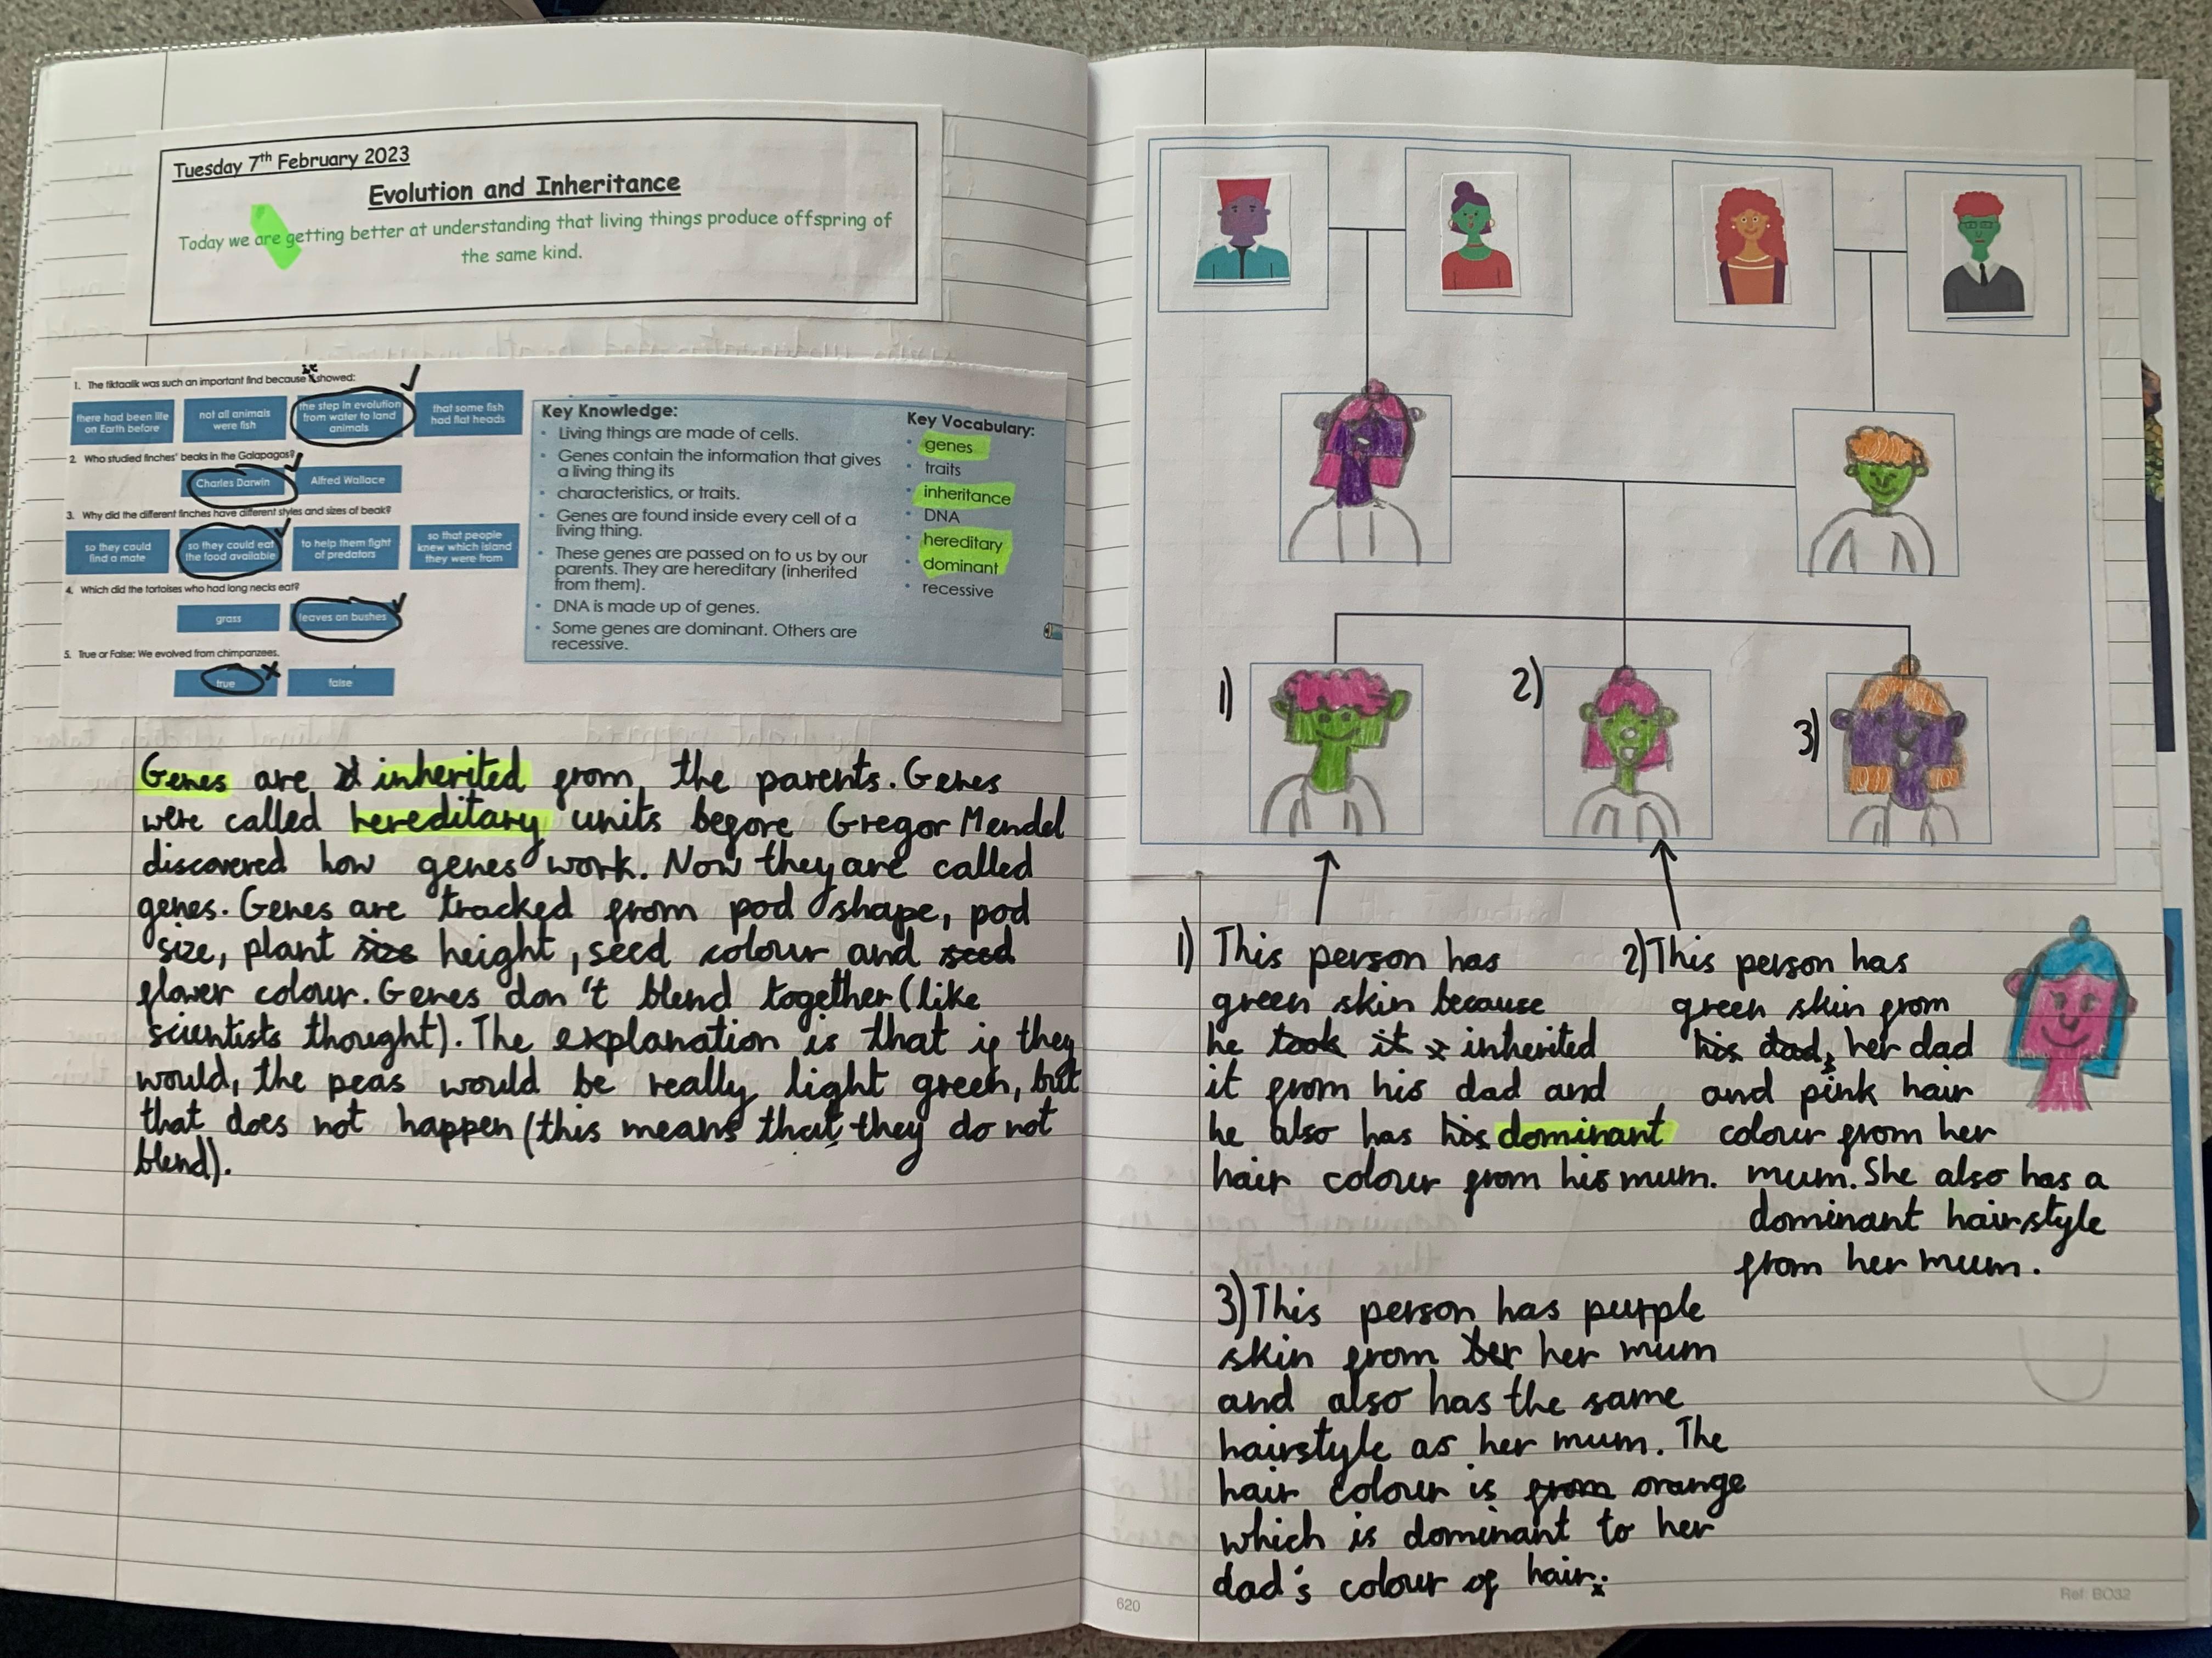 Tuesday 7th February 2023
Evolution and Inheritance
Today we are getting better at understanding that living things produce offspring of
the same kind.
1. The tiktaalik was such an important find because it showed:
there had been life
on Earth before
not all animals
were fish
the step in evolution
from water to land
animals
that some fish
had flat heads
2. Who studied finches' beaks in the Galapagos?
Charles Darwin
Alfred Wallace
3. Why did the different finches have different styles and sizes of beak?
so they could
find a mate
so they could eat
the food available
to help them fight
of predators
so that people
knew which island
they were from
4. Which did the tortoises who had long necks eat?
grass
leaves on bushes
5. True or False: We evolved from chimpanzees.
true
false
Key Knowledge:
• Living things are made of cells.
• Genes contain the information that gives
a living thing its
• characteristics, or traits.
• Genes are found inside every cell of a
living thing.
• These genes are passed on to us by our
parents. They are hereditary (inherited
from them).
• DNA is made up of genes.
• Some genes are dominant. Others are
recessive.
Key Vocabulary:
• genes
• traits
• inheritance
• DNA
• hereditary
• dominant
• recessive
Genes are inherited from the parents. Genes
were called hereditary units before Gregor Mendel
discovered how genes work. Now they are called
genes. Genes are tracked from pod shape, pod
size, plant size height, seed colour and seed
flower colour. Genes don't blend together (like
scientists thought). The explanation is that if they
would, the peas would be really light green, but
that does not happen (this means that they do not
blend).
1)
2)
3)
1) This person has
green skin because
he took it inherited
it from his dad and
he also has his dominant
hair colour from his mum.
2) This person has
green skin from
his dad, her dad
and pink hair
colour from her
mum. She also has a
dominant hairstyle
from her mum.
3) This person has purple
skin from her her mum
and also has the same
hairstyle as her mum. The
hair colour is from orange
which is dominant to her
dad's colour of hair.
620
Ref: BO32